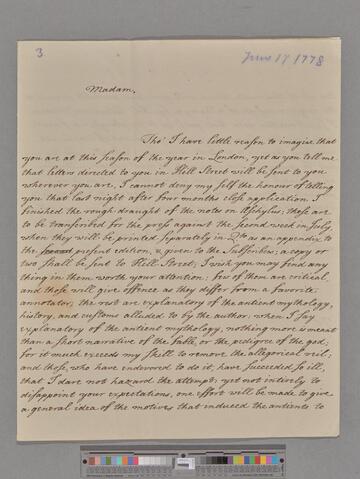 3
June 17 1778
Madam,
Tho' I have little reason to imagine that
you are at this season of the year in London, yet as you tell me
that letters directed to you in Hill Street will be sent to you
wherever you are, I cannot deny my self the honour of telling
you that last night after four months close application I
finished the rough draught of the notes on Æschylus; these are
to be transcribed for the press against the second week in July,
when they will be printed separately in 4to as an appendix to
the present edition, & given to the Subscribers; a copy or
two shall be sent to Hill-Street; I wish you may find any
thing in them worth your attention: few of them are critical,
and those will give offence as they differ from a favorite
annotator; the rest are explanatory of the antient mythology,
history, and customs alluded to by the author: when I say
explanatory of the antient mythology, nothing more is meant
than a short narrative of the fable, or the pedigree of the god;
for it much exceeds my skill to remove the allegorical veil;
and those, who have endevored to do it, have succeeded so ill,
that I dare not hazard the attempt: yet not intirely to
disappoint your expectations, one effort will be made to give
a general idea of the motives that induced the antients to